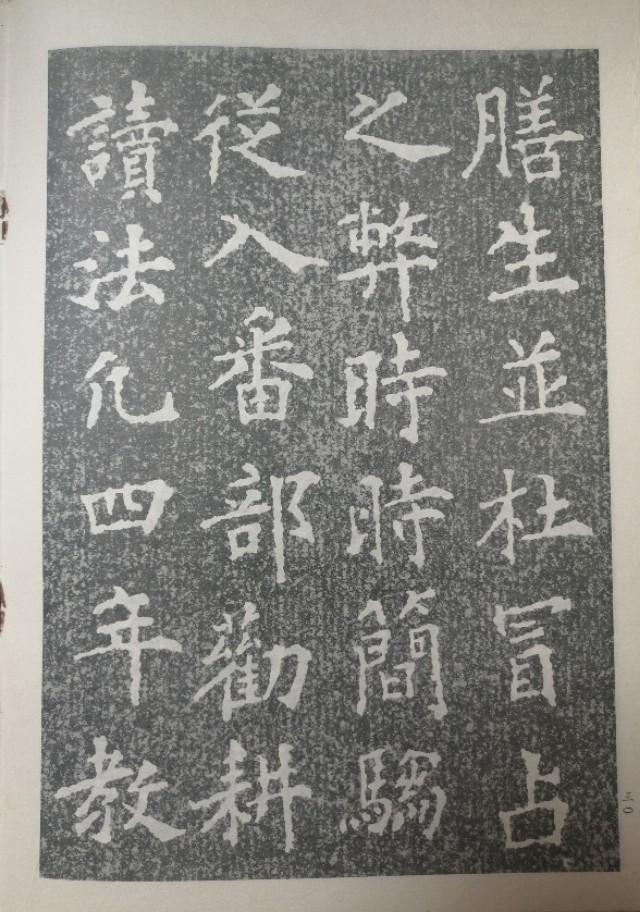 膳生並杜冒占
之弊時時簡騶
從入番部勸耕
讀法凢四年教